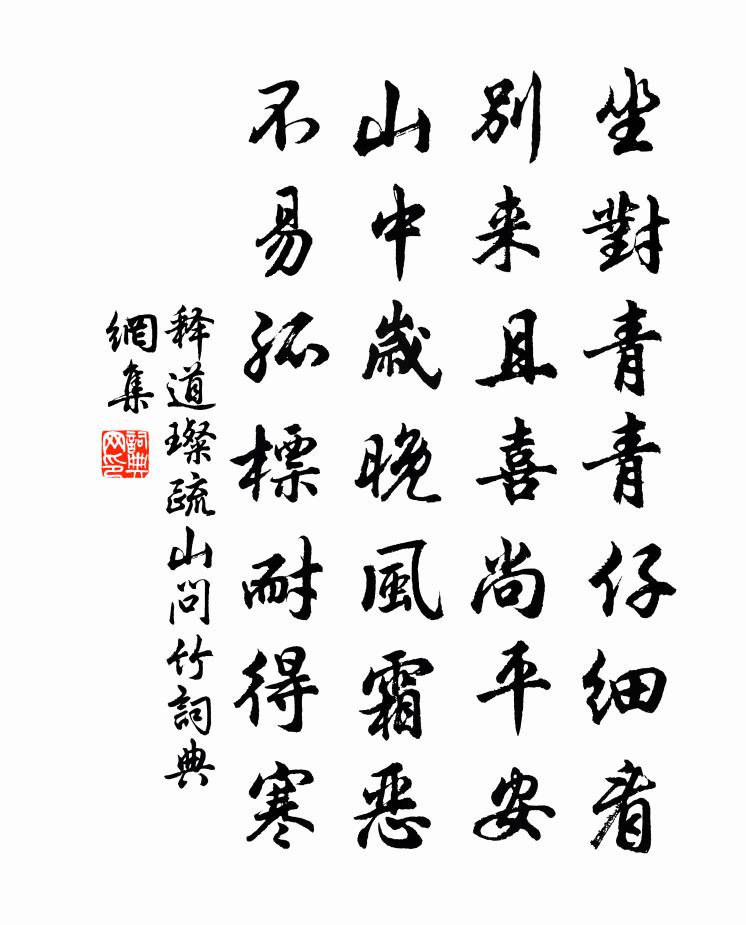 坐對青青仔細看
別来且喜尚平安
山中歳晚風霜惡
不易孤標耐得寒
释道璨疏山問竹詞典
網集
詞典
网印